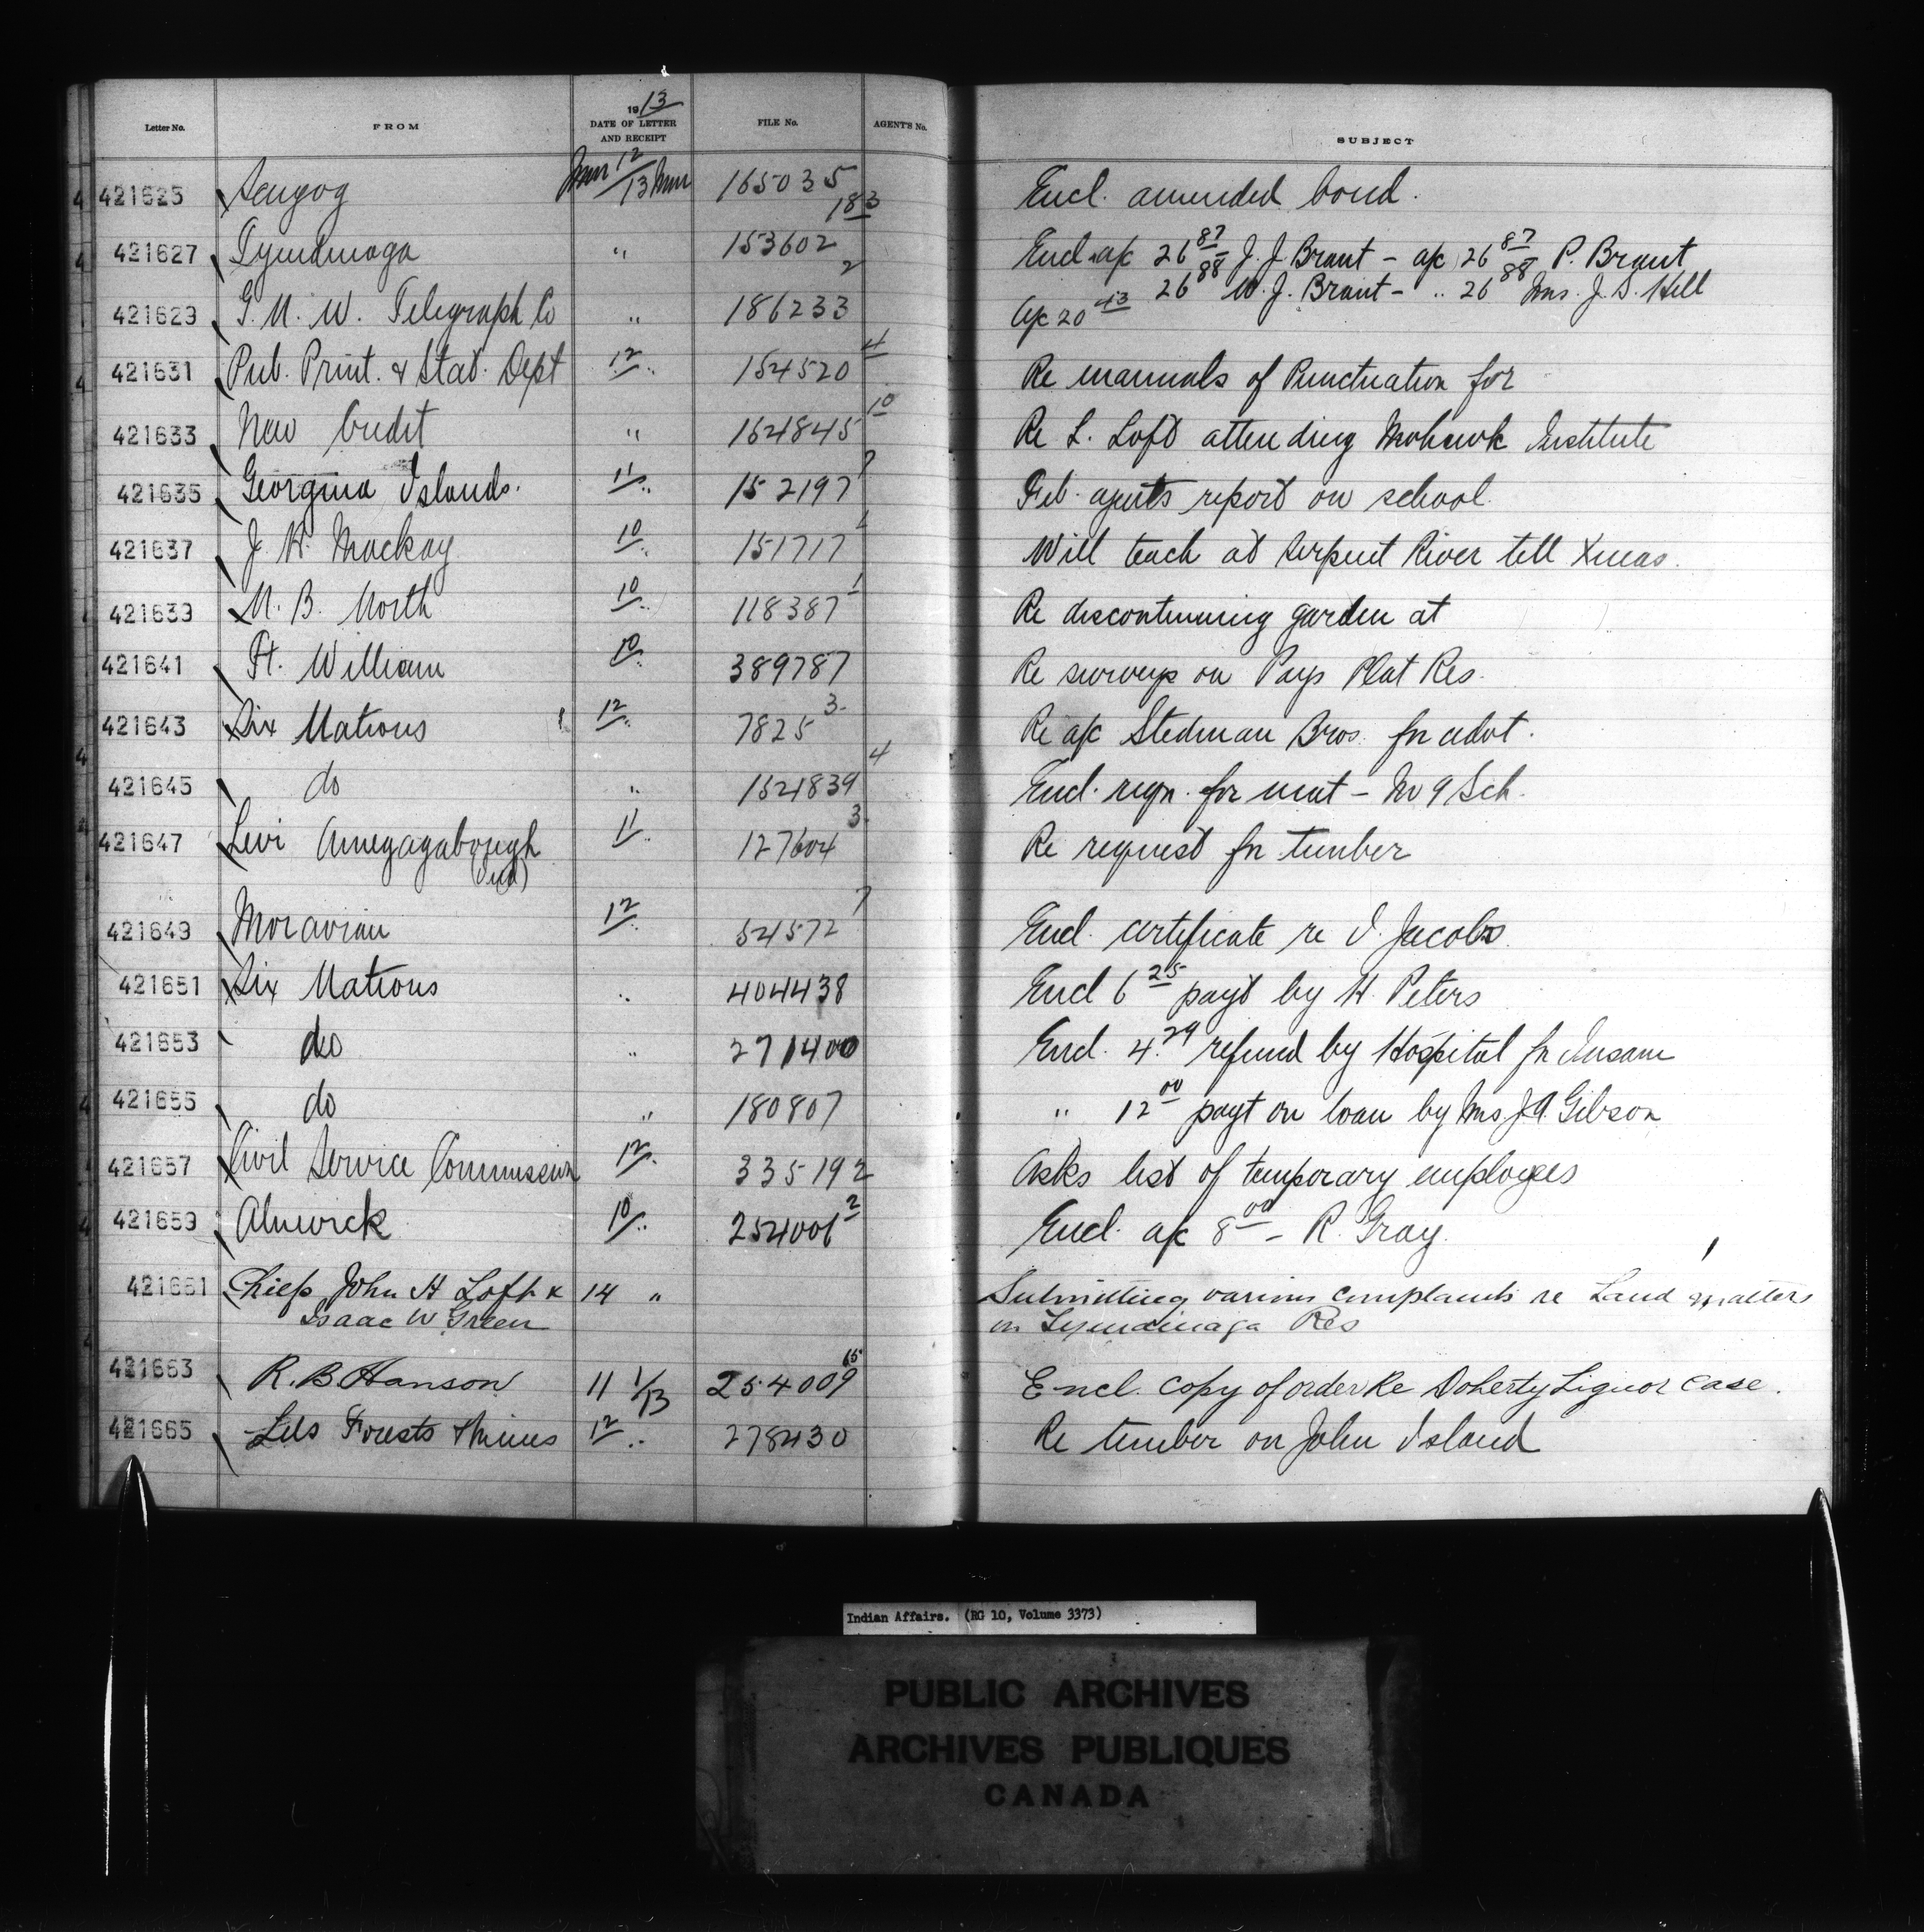 Letter No. FROM 1913 DATE OF LETTER AND RECEIPT FILE No. AGENT'S No. SUBJECT
421625 Scugog 12/13 165035 Encl. amended bond.
421627 Tyendinaga " 153602 18-3 Encl. a/c 26 87 J. J. Brant - a/c 26 87 P. Brant
26 88 W. J. Brant - " 26 88 Mrs. J. S. Hill
421629 G. N. W. Telegraph Co " 186233 2 a/c 20 43
421631 Pub. Print. & Stat. Dept 12 " 154520 4 Re manuals of Punctuation for
421633 New Credit " 164845 10 Re L. Loft attending Mohawk Institute
421635 Georgina Islands. 11 " 152197 7 Feb. agents report on school.
421637 J. H. Mackay 10 " 151717 1 Will teach at Serpent River till Xmas.
421639 N. B. North 10 " 118387 1 Re discontinuing garden at
421641 Ft. William 10 " 389787 Re surveys on Pays Plat Res.
421643 Six Nations 12 " 7825 3 Re a/c Stedman Bros. for advt.
421645 do " 1621839 4 Encl. reqn. for mat - No 9 Sch.
421647 Levi Amegagabough 11 " 127604 3 Re request for timber
(Ind)
421649 Moravian 12 " 54572 7 Encl. certificate re I. Jacobs.
421651 Six Nations " 404438 Encl 6 25 payt by H. Peters
421653 do " 271400 Encl. 4.29 refund by Hospital for Insane
421655 do " 180807 " 12 00 payt on loan by Mrs. J. A. Gibson
421657 Civil Service Commission 12 " 335192 Asks list of temporary employees
421659 Alnwick 10 " 254006 2 Encl. a/c 8 00 - R. Gray.
421661 Chiefs John H Loft & 14 " Submitting various complaints re Land matters
Isaac W Green on Tyendinaga Res
421663 R. B. Hanson 11 1/13 254009 65 Encl. copy of order Re Doherty Liquor case.
421665 Lds Forests & Mines 12 " 278430 Re timber on John Island
Indian Affairs. (RG 10, Volume 3373)
PUBLIC ARCHIVES
ARCHIVES PUBLIQUES
CANADA